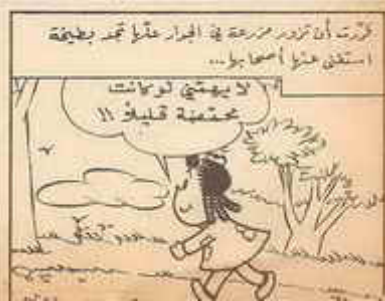 قررت أن تزور مزرعة في الجوار علّها تجد بطيخة
استغنى عنها أصحابها...
لا يهمني لو كانت
محتمبة قليلاً !!